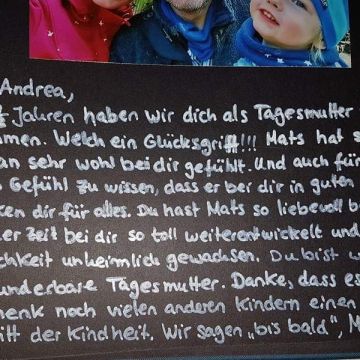 Andrea,
Jahren haben wir dich als Tagesmutter
men. Welch ein Glücksgriff!!! Mats hat s
an sehr wohl bei dir gefühlt. Und auch für
Gefühl zu wissen, dass er bei dir in guten
ken dir für alles. Du hast Mats so liebevoll b
er Zeit bei dir so toll weiterentwickelt und
chkeit unheimlich gewachsen. Du bist w
underbare Tagesmutter. Danke, dass es
henk noch vielen anderen Kindern einen
itt der Kindheit. Wir sagen „bis bald", M